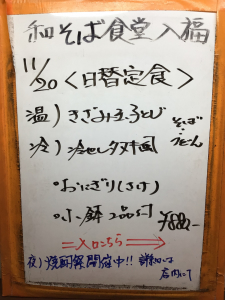 和そば食堂 入福
11/20 <日替定食>
温) きざみ玉子とじ
冷) 冷セレタヌキ風
そば・うどん
・おにぎり(さけ)
・小鉢2品付 ¥880-
=入口こちら=⇒
夜) 焼酎祭開催中!! 詳細は店内にて